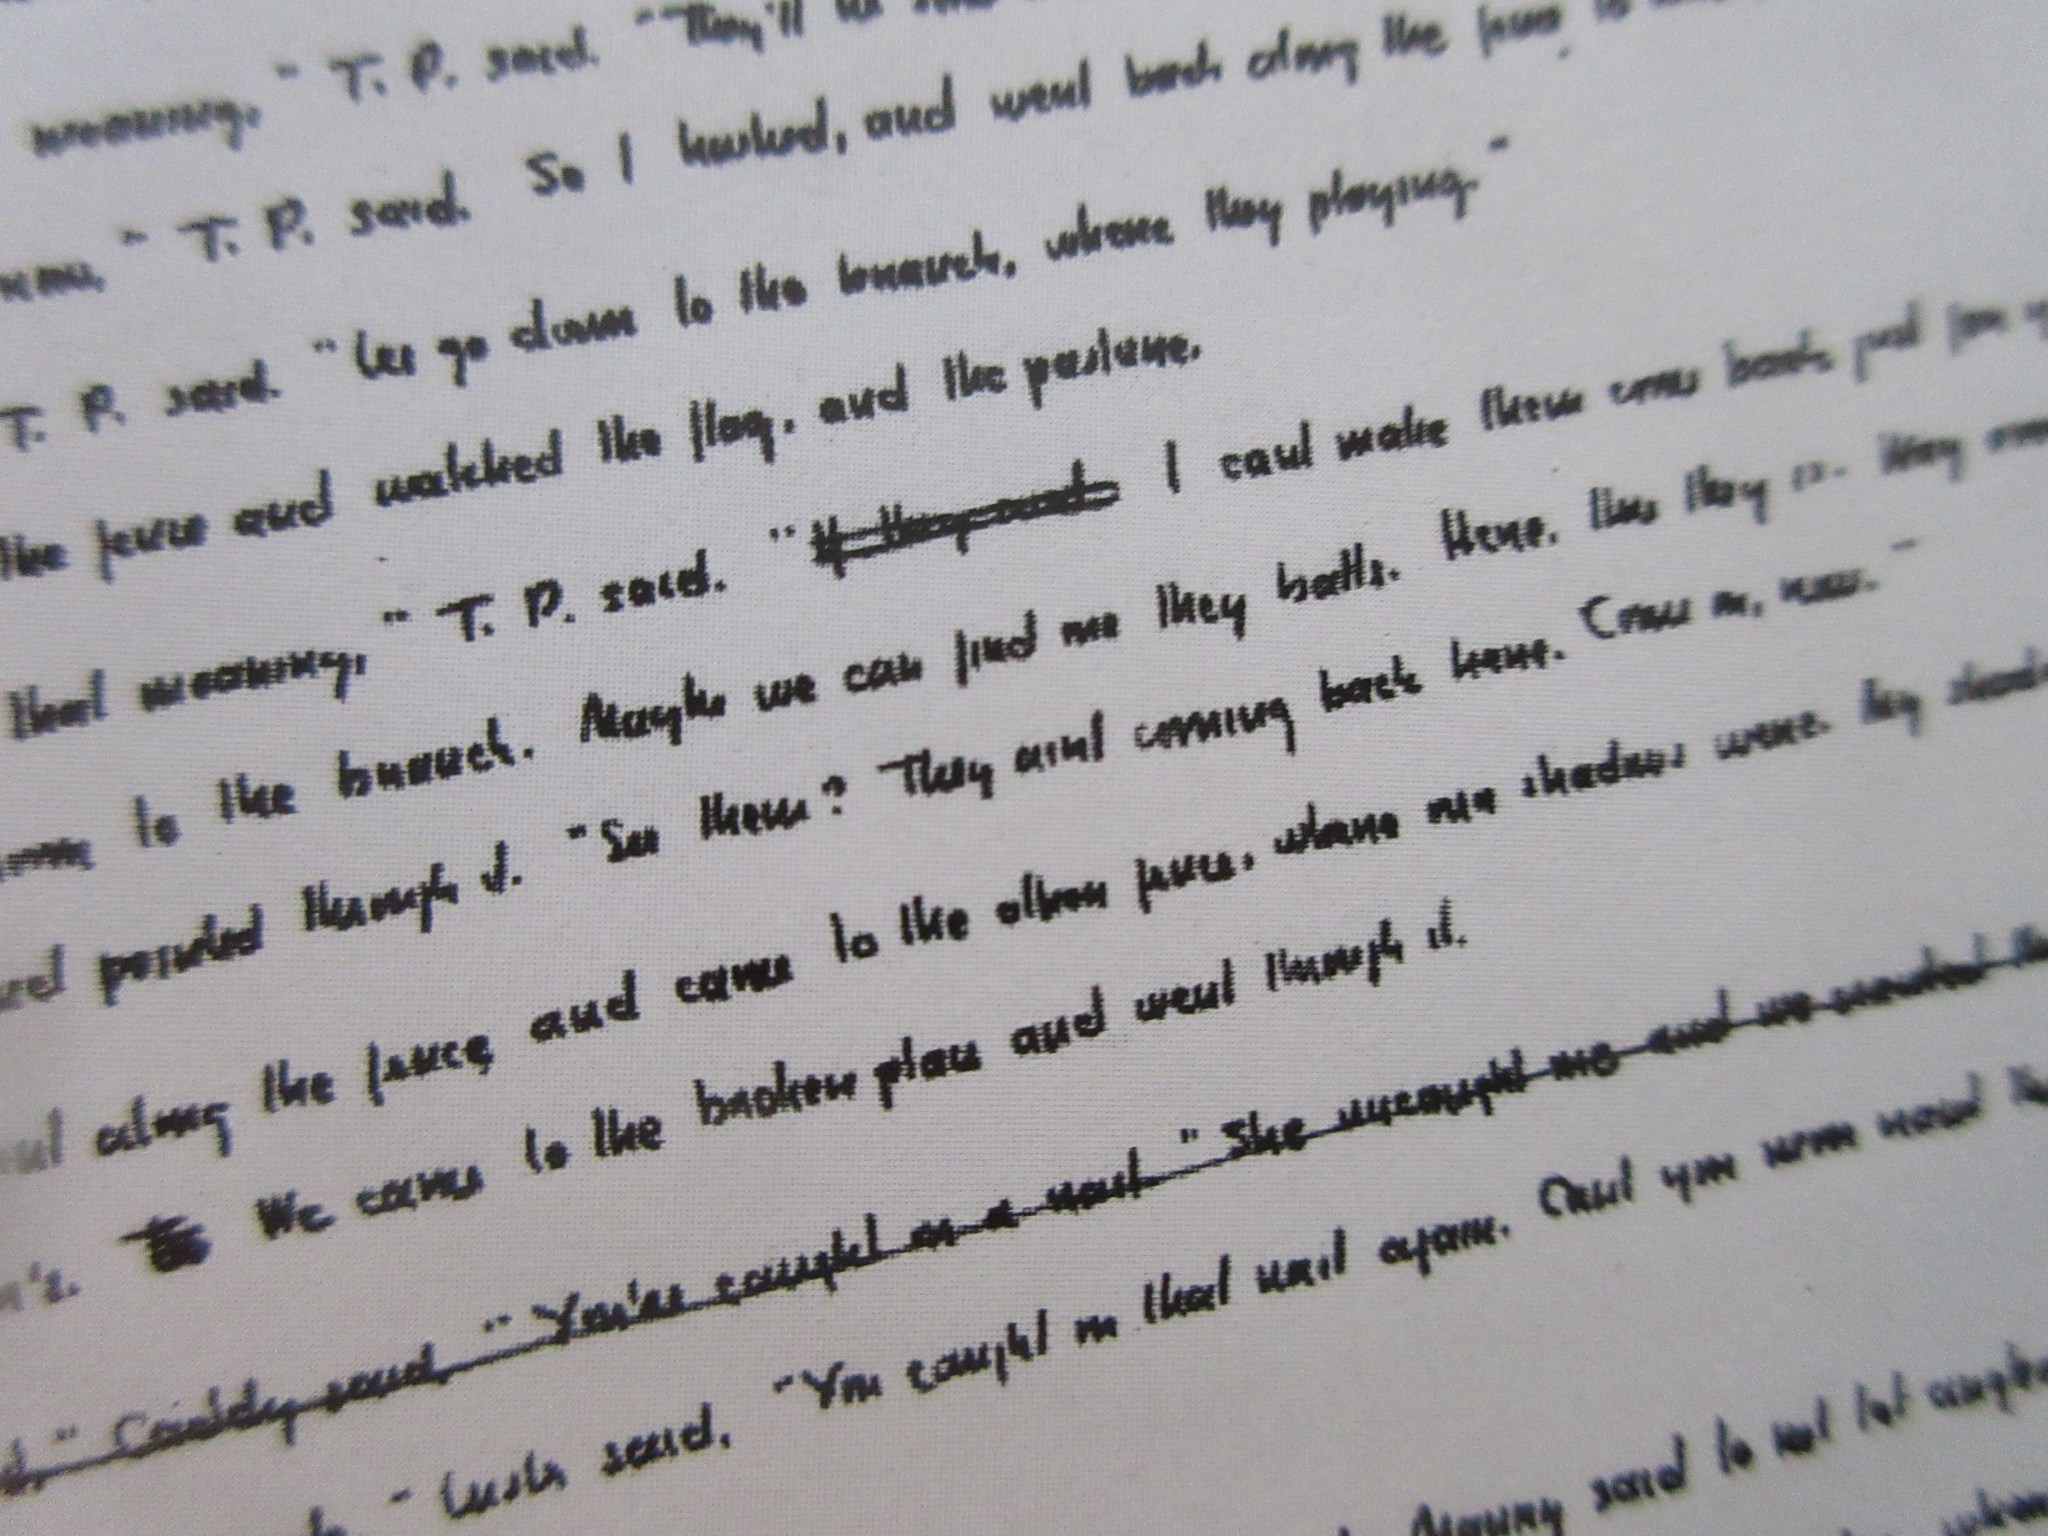 moaning," T. P. said. "They'll
T. P. said. So I hushed, and went back along the fence to
T. P. said. "Les go down to the branch, where they playing."
the fence and watched the flag, and the pasture.
that moaning," T. P. said. "If they and I cant make them come back just
to the branch. Maybe we can find me they balls. Here. Here they is.
pointed through it. "See them? They aint coming back here. Come on, now."
along the fence and came to the other fence, where our shadows were. My
We came to the broken place and went through it.
Caddy said. "You're caught on a nail." She uncaught me and we crawled
Luster said. "You caught on that nail again. Cant you never crawl
Maury said to not let